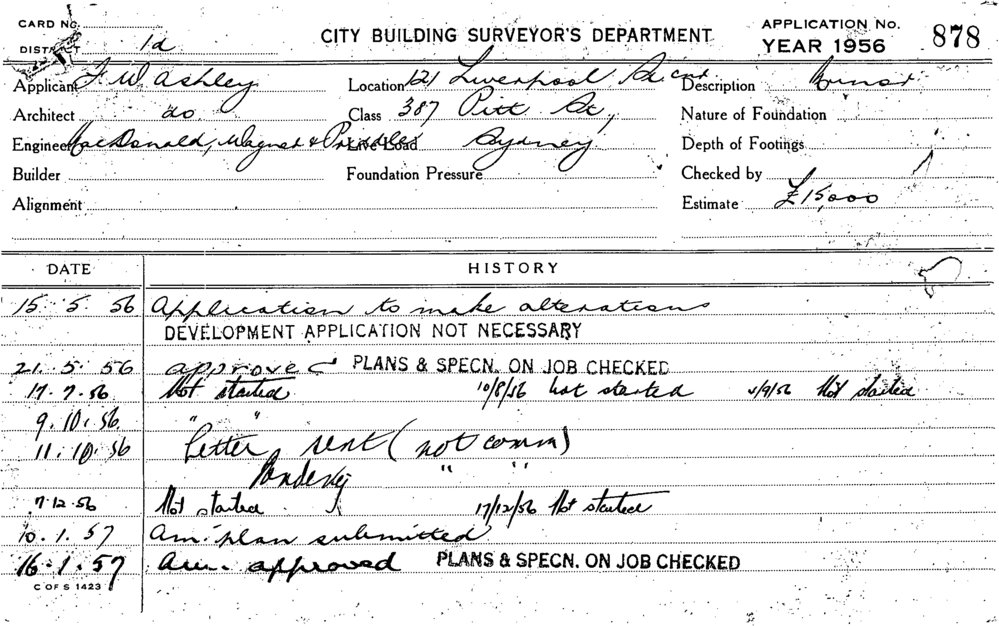 CARD NO.
CITY BUILDING SURVEYOR'S DEPARTMENT
APPLICATION NO.
878
DISTRICT 1d
YEAR 1956
Applicant F. W. Ashley
Location 121 Liverpool St cnr
Description
Architect do
Class 387 Pitt St,
Nature of Foundation
Engineer MacDonald, Wagner & Priddle
Live Load Sydney
Depth of Footings
Builder
Foundation Pressure
Checked by
Alignment
Estimate £15,000
DATE HISTORY
15. 5. 56 Application to make alterations
DEVELOPMENT APPLICATION NOT NECESSARY
21. 5. 56 approved PLANS & SPECN. ON JOB CHECKED
17. 7. 56 Not started 10/8/56 not started 5/9/56 Not started
9. 10. 56 " "
11. 10. 56 letter sent (not comm)
Pending " "
7. 12. 56 Not started 17/12/56 Not started
10. 1. 57 Am. plan submitted
16. 1. 57 Am. approved PLANS & SPECN. ON JOB CHECKED
C OF S 1423